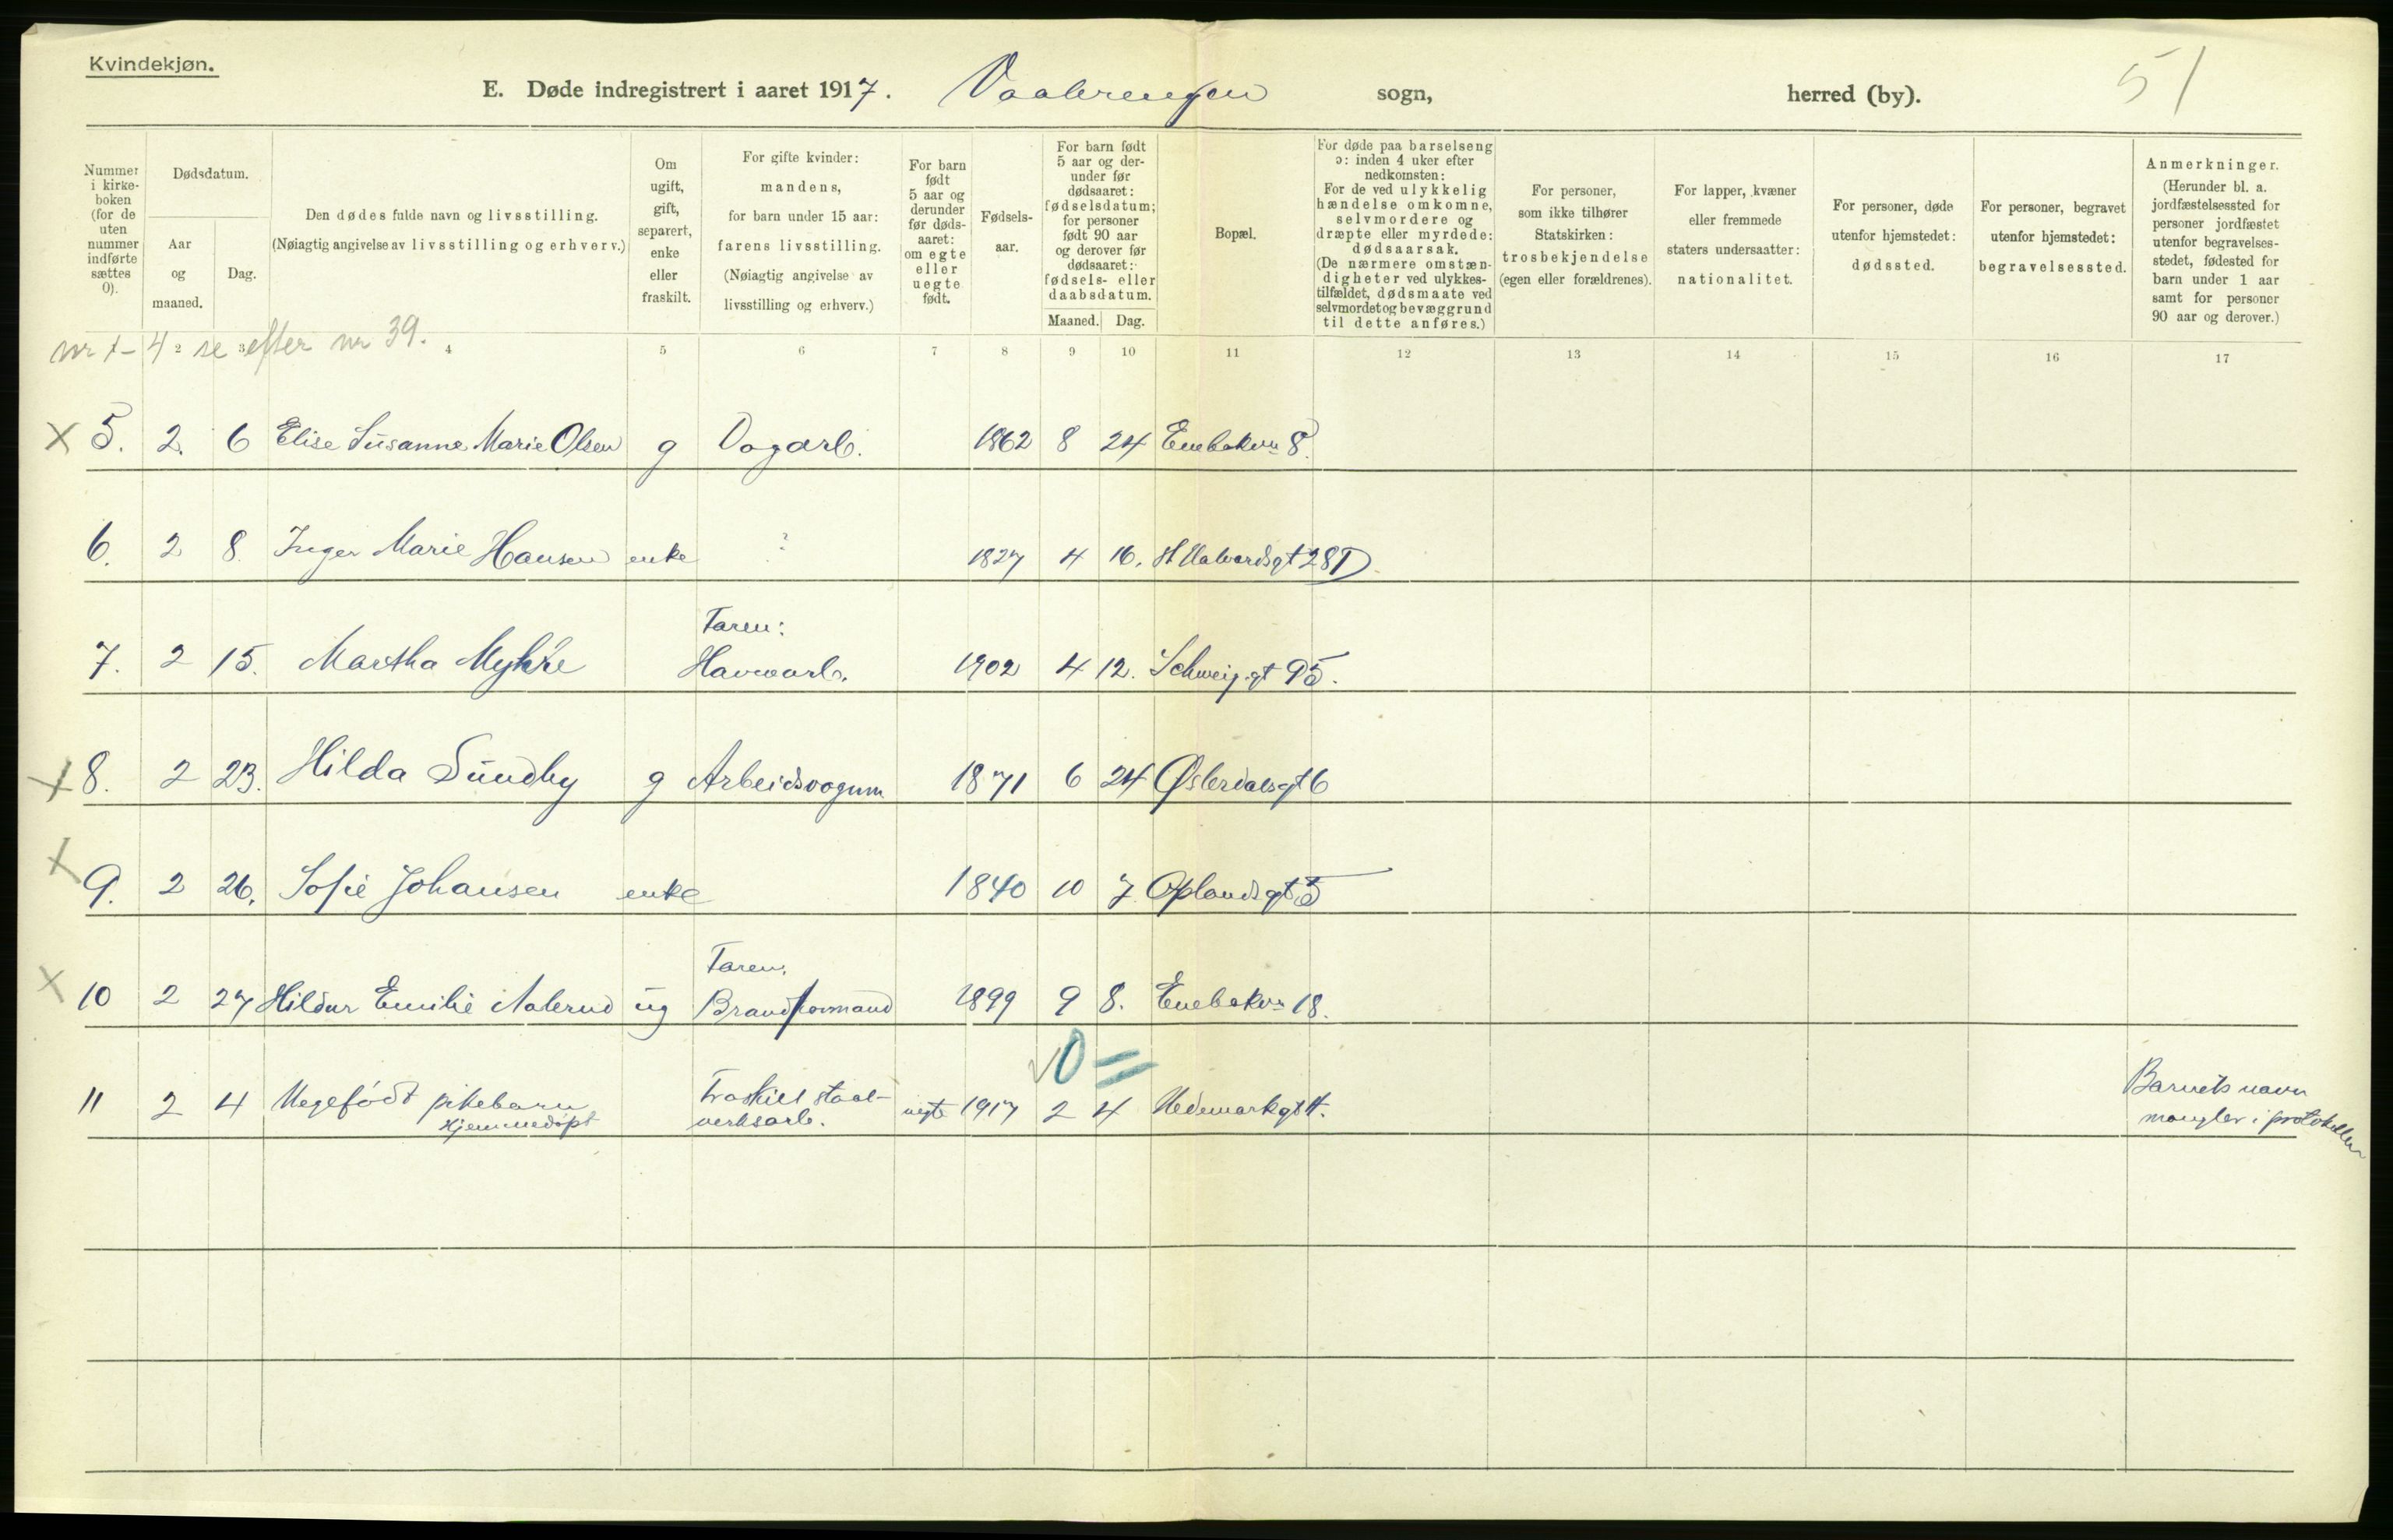 Kvindekjøn.
E. Døde indregistrert i aaret 1917. Vaalerengen sogn, herred (by).
51
Nummer i kirkeboken (for de uten nummer indførte sættes 0).
Dødsdatum.
Aar og maaned.
Dag.
Den dødes fulde navn og livsstilling.
(Nøiagtig angivelse av livsstilling og erhverv.)
Om ugift, gift, separert, enke eller fraskilt.
For gifte kvinder: mandens, for barn under 15 aar: farens livsstilling. (Nøiagtig angivelse av livsstilling og erhverv.)
For barn født 5 aar og derunder før dødsaaret: om egte eller uegte født.
Fødselsaar.
For barn født 5 aar og derunder før dødsaaret: fødselsdatum; for personer født 90 aar og derover før dødsaaret: fødsels- eller daabsdatum.
Maaned. Dag.
Bopæl.
For døde paa barselseng ɔ: inden 4 uker efter nedkomsten: For de ved ulykkelig hændelse omkomne, selvmordere og dræpte eller myrdede: dødsaarsak. (De nærmere omstændigheter ved ulykkestilfældet, dødsmaate ved selvmordet og bevæggrund til dette anføres.)
For personer, som ikke tilhører Statskirken: trosbekjendelse (egen eller forældrenes).
For lapper, kvæner eller fremmede staters undersaatter: nationalitet.
For personer, døde utenfor hjemstedet: dødssted.
For personer, begravet utenfor hjemstedet: begravelsessted.
Anmerkninger. (Herunder bl. a. jordfæstelsessted for personer jordfæstet utenfor begravelsesstedet, fødested for barn under 1 aar samt for personer 90 aar og derover.)
nr 1-4 se efter nr 39.
2 3 4 5 6 7 8 9 10 11 12 13 14 15 16 17
X 5. 2. 6 Elise Susanne Marie Olsen g Vogarb. 1862 8 24 Enebakvn 8.
6. 2 8. Inger Marie Hansen enke ? 1827 4 16. St Halvardsgt 28D.
Faren:
7. 2 15. Martha Myhre Havnearb. 1902 4 12. Schweig.gt 95.
X 8. 2 23. Hilda Sundby g Arbeidsvognm 1871 6 24 Østerdalsgt 6
X 9. 2 26. Sofie Johansen enke 1840 10 7 Oplandsgt 5
Faren.
X 10 2 27 Hildur Emilie Aalerud ug Brandformand 1899 9 8. Enebakvn 18.
√ 0 =
11 2 4 Uegefødt pikebarn Fraskilt staal- uegte 1917 2 4 Hedemarkgt 4. Barnets navn
hjemmedøpt verksarb. mangler i protokollen